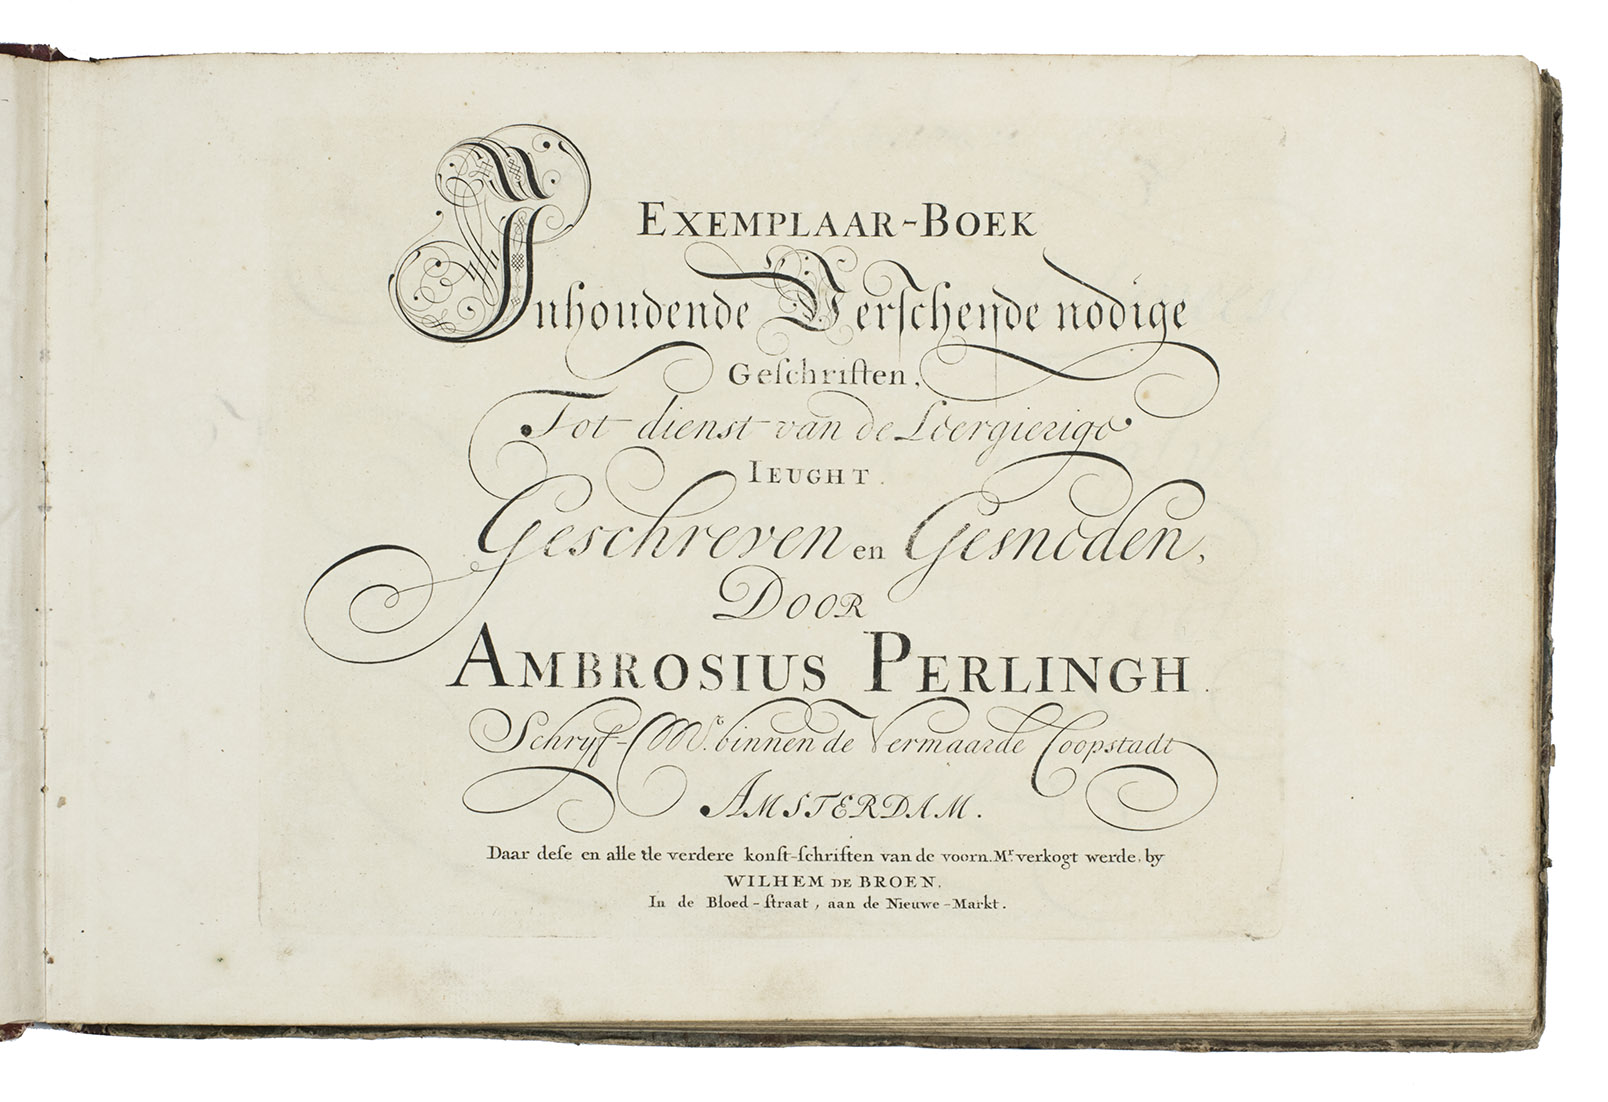 EXEMPLAAR-BOEK
Inhoudende Verscheyde nodige
Geschriften,
Tot dienst van de Leergierige
IEUGHT.
Geschreven en Gesneden,
DOOR
AMBROSIUS PERLINGH.
Schryf-Mr. binnen de Vermaarde Coopstadt
AMSTERDAM.
Daar dese en alle de verdere konst-schriften van de voorn. Mr. verkogt werde, by
WILHEM DE BROEN,
In de Bloed-straat, aan de Nieuwe-Markt.